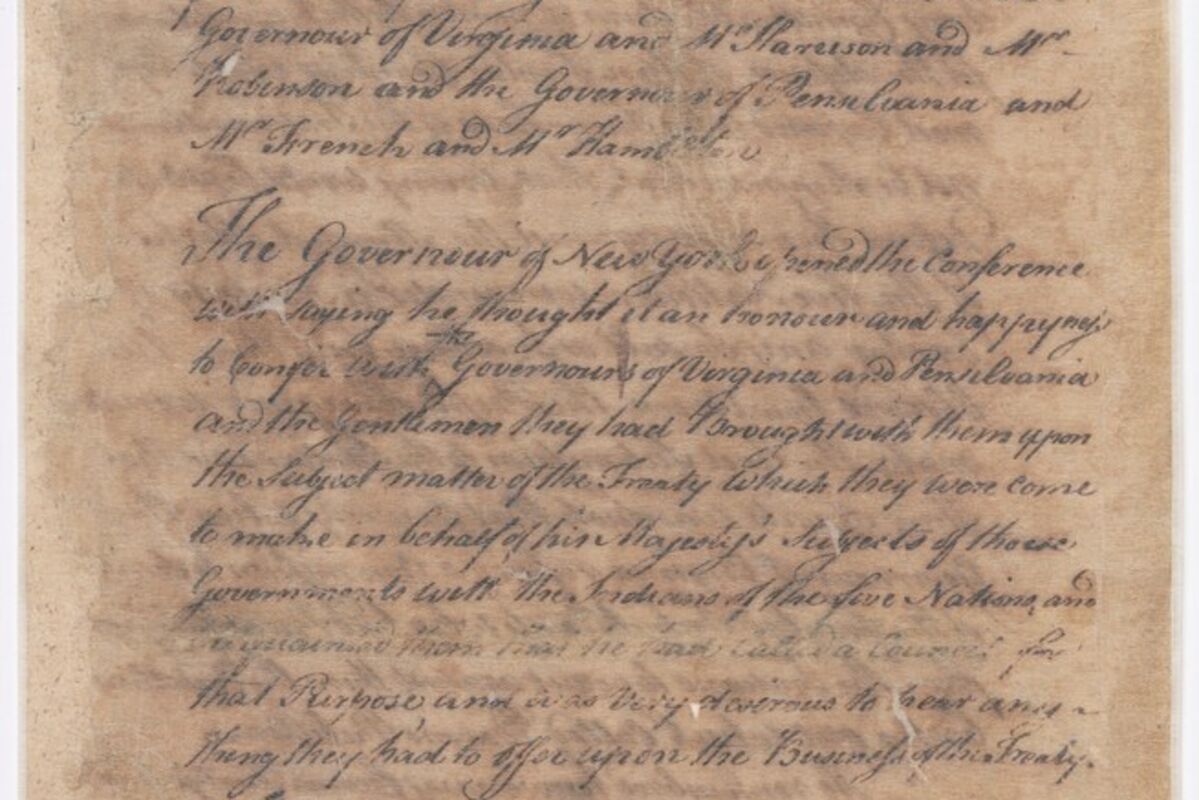 Governour of Virginia and Mr Harrison and Mr
Robinson and the Governour of Pensilvania and
Mr French and Mr Hambleton
The Governour of New York opened the Conference
with saying he thought it an honour and happyness
to Confer with the Governours of Virginia and Pensilvania
and the Gentlemen they had Brought with them upon
the Subject matter of the Treaty which they were come
to make in behalf of his Majesty's Subjects of those
Governments with the Indians of the five Nations, and
acquainted them that he had Called a Council for
that Purpose, and was Very desirous to hear any
thing they had to offer upon the Business of this Treaty.